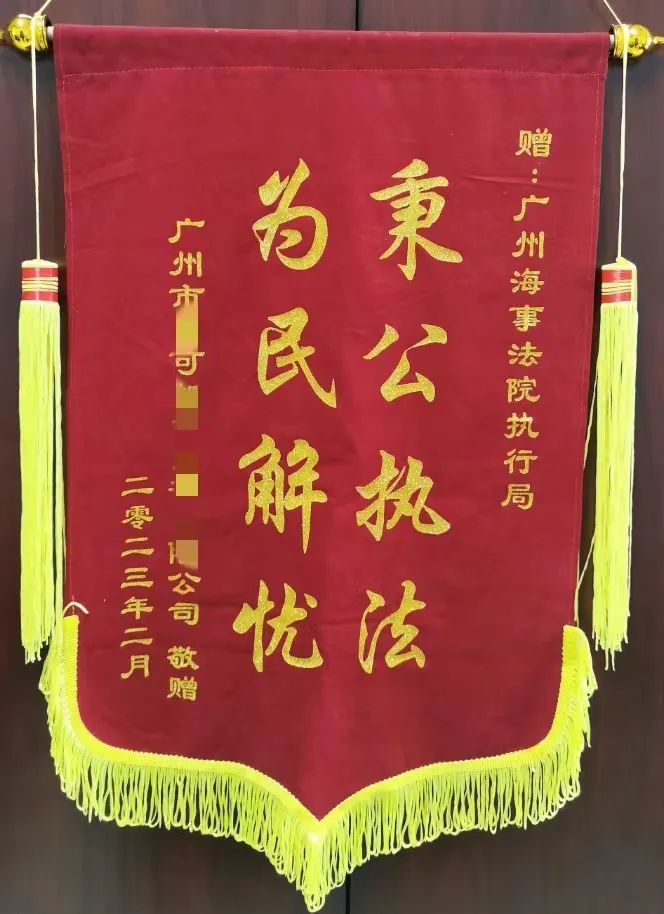 赠：广州海事法院执行局
秉公执法
为民解忧
广州市 可 公司 敬赠
二零二三年二月